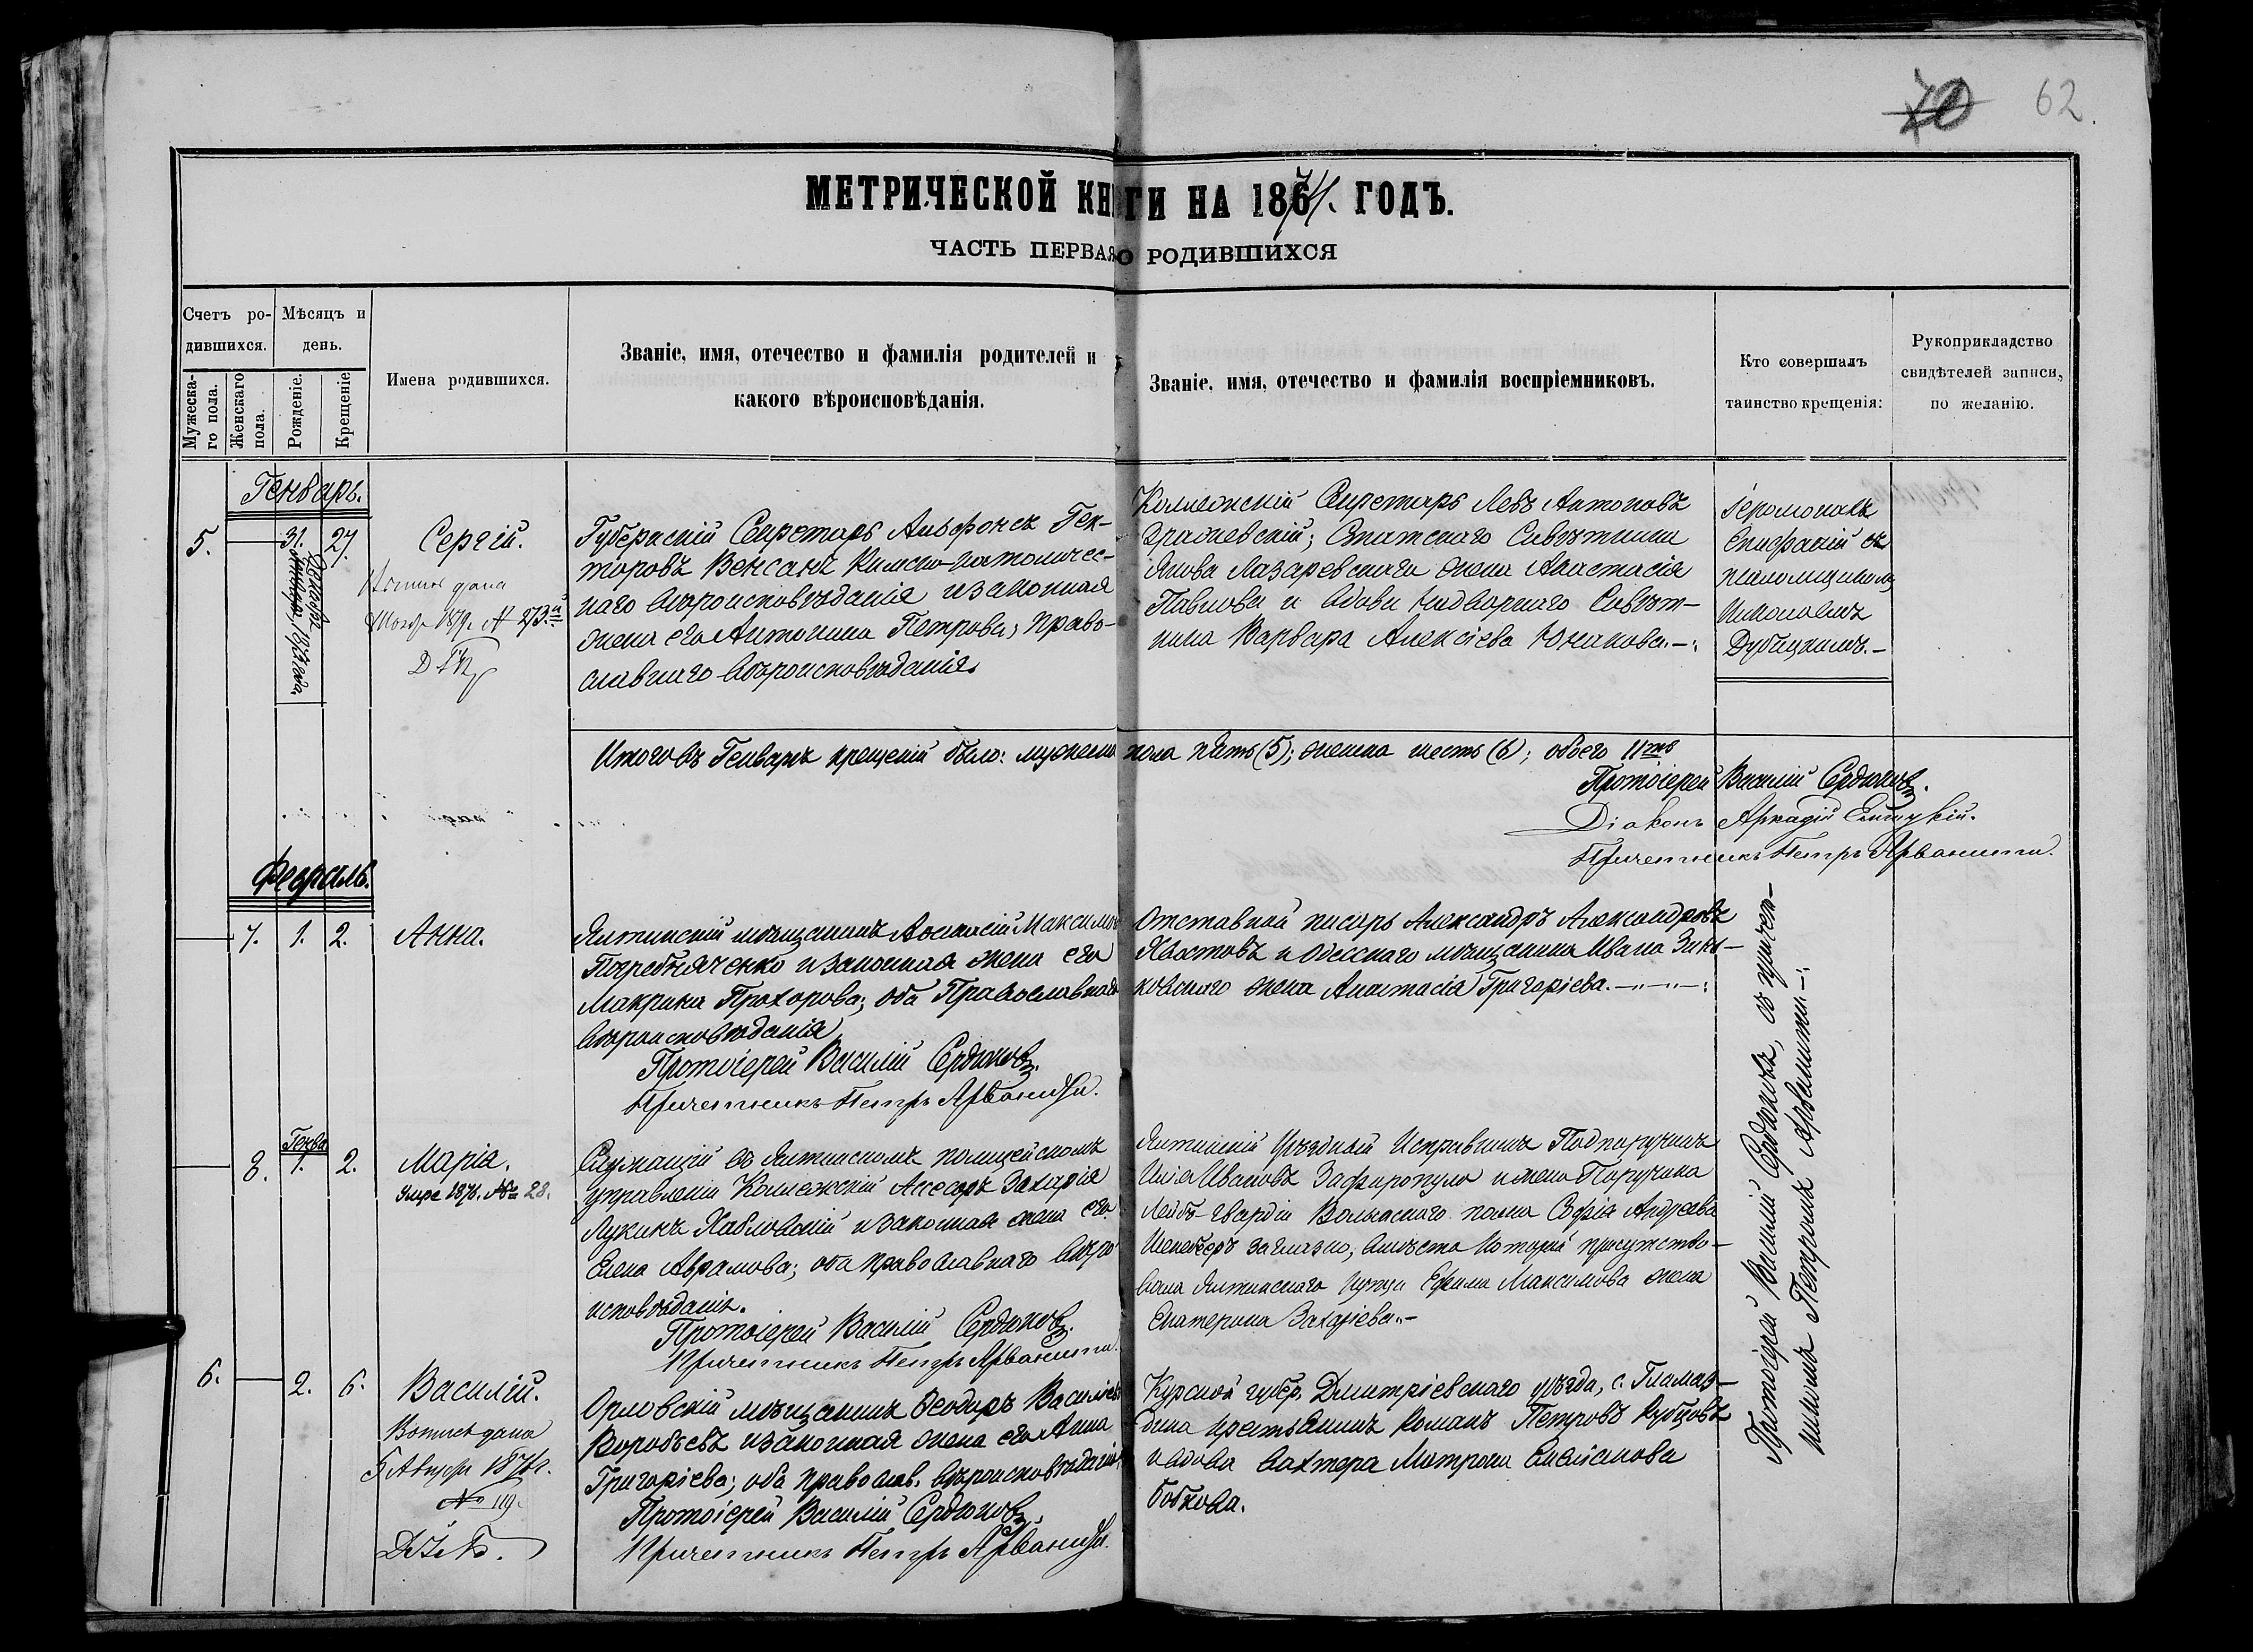 70 62.
МЕТРИЧЕСКОЙ КНИГИ НА 1874. ГОДЪ.
ЧАСТЬ ПЕРВАЯ О РОДИВШИХСЯ
Счетъ ро-
дившихся.
Мужеска-
го пола.
Женскаго
пола.
Мѣсяцъ и
день.
Рожденіе.
Крещеніе
Имена родившихся.
Званіе, имя, отечество и фамилія родителей и
какого вѣроисповѣданія.
Званіе, имя, отечество и фамилія воспріемниковъ.
Кто совершалъ
таинство крещенія:
Рукоприкладство
свидѣтелей записи,
по желанію.
Генварь.
5.
31.
Декабря 1873 года.
27.
Сергій.
дана
1879. № 273.
Губернскій Секретарь Альфонсъ Гек-
торовъ Венсанъ Римско-католичес-
каго вѣроисповѣданія и законная
жена его Антонина Петрова, право-
славнаго вѣроисповѣданія.
Коллежскій Секретарь Левъ Антоновъ
Статскаго Совѣтника
Якова Лазаревскаго жена Анастасія
Павлова и вдова Надворнаго Совѣт-
ника Варвара Алексіева Юнакова.—:
Іеромонахъ
Епифаній съ
псаломщикомъ
Николаемъ
Дубицкимъ.—
Итого въ Генварѣ крещеній было: мужеска пола пять (5); женска шесть (6); обоего 11ть
Протоіерей Василій Сердюковъ.
Діаконъ Аркадій
Причетникъ Петръ Арванити.
Февраль.
7. 1. 2.
Анна.
Ялтинскій мѣщанинъ Аѳанасій Максимовъ
Погребняченко и законная жена его
Макрина Прохорова; оба Православнаго
вѣроисповѣданія
Протоіерей Василій Сердюковъ.
Причетникъ Петръ Арваниди.
Отставной писарь Александръ Александровъ
Хвостовъ и Одесскаго мѣщанина Ивана Зинь-
ковскаго жена Анастасія Григоріева.—"—"—:
Протоіерей Василій Сердюковъ, съ причет-
никомъ Петромъ Арванитии—:
8.
Генва
1. 2.
Марія.
Умре 1876. № 28.
Служащій въ Ялтинскомъ полицейскомъ
управленіи Коллежскій Ассесоръ Захарія
Лукинъ Хабловскій и законная жена его
Елена Аврамова; оба православнаго вѣро-
исповѣданія.
Протоіерей Василій Сердюковъ.
Причетникъ Петръ Арванити.
Ялтинскій Уѣздный Исправникъ Подпоручикъ
Илія Ивановъ Зафиропуло и жена Поручика
Лейбъ-гвардіи Волынскаго полка Софія Андреева
заглазно, вмѣсто которой присутство-
вала Ялтинскаго купца Ефима Максимова жена
Екатерина Захаріева.—
6. 2. 6.
Василій.
дана
5 1874.
№ 119.
Орловскій мѣщанинъ Ѳеодоръ Василіевъ
Воробьевъ и законная жена его Анна
Григоріева; оба православ. вѣроисповѣданія
Протоіерей Василій Сердюковъ.
Причетникъ Петръ Арваниди.
Курской губер. Дмитріевскаго уѣзда, с. Гламаз-
дина крестьянинъ Романъ Петровъ Купцовъ
и вдова вахтера Матрона
Бобкова.